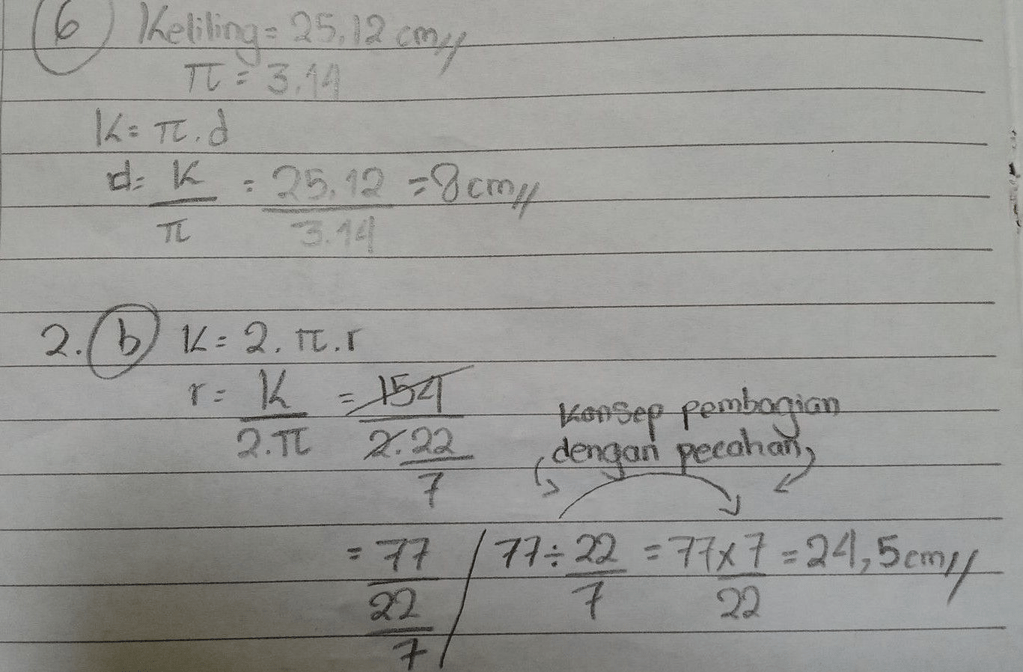 6 Keliling = 25.12 cm//
π = 3.14
K = π.d
d = K/π = 25.12/3.14 = 8 cm//
2. b K = 2.π.r
r = K/2.π = 154/2.22/7
Konsep pembagian
dengan pecahan
= 77/22/7 / 77 ÷ 22/7 = 77x7/22 = 24,5 cm//